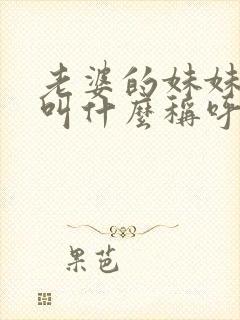 老婆的妹妹
叫什麼稱呼
果芭